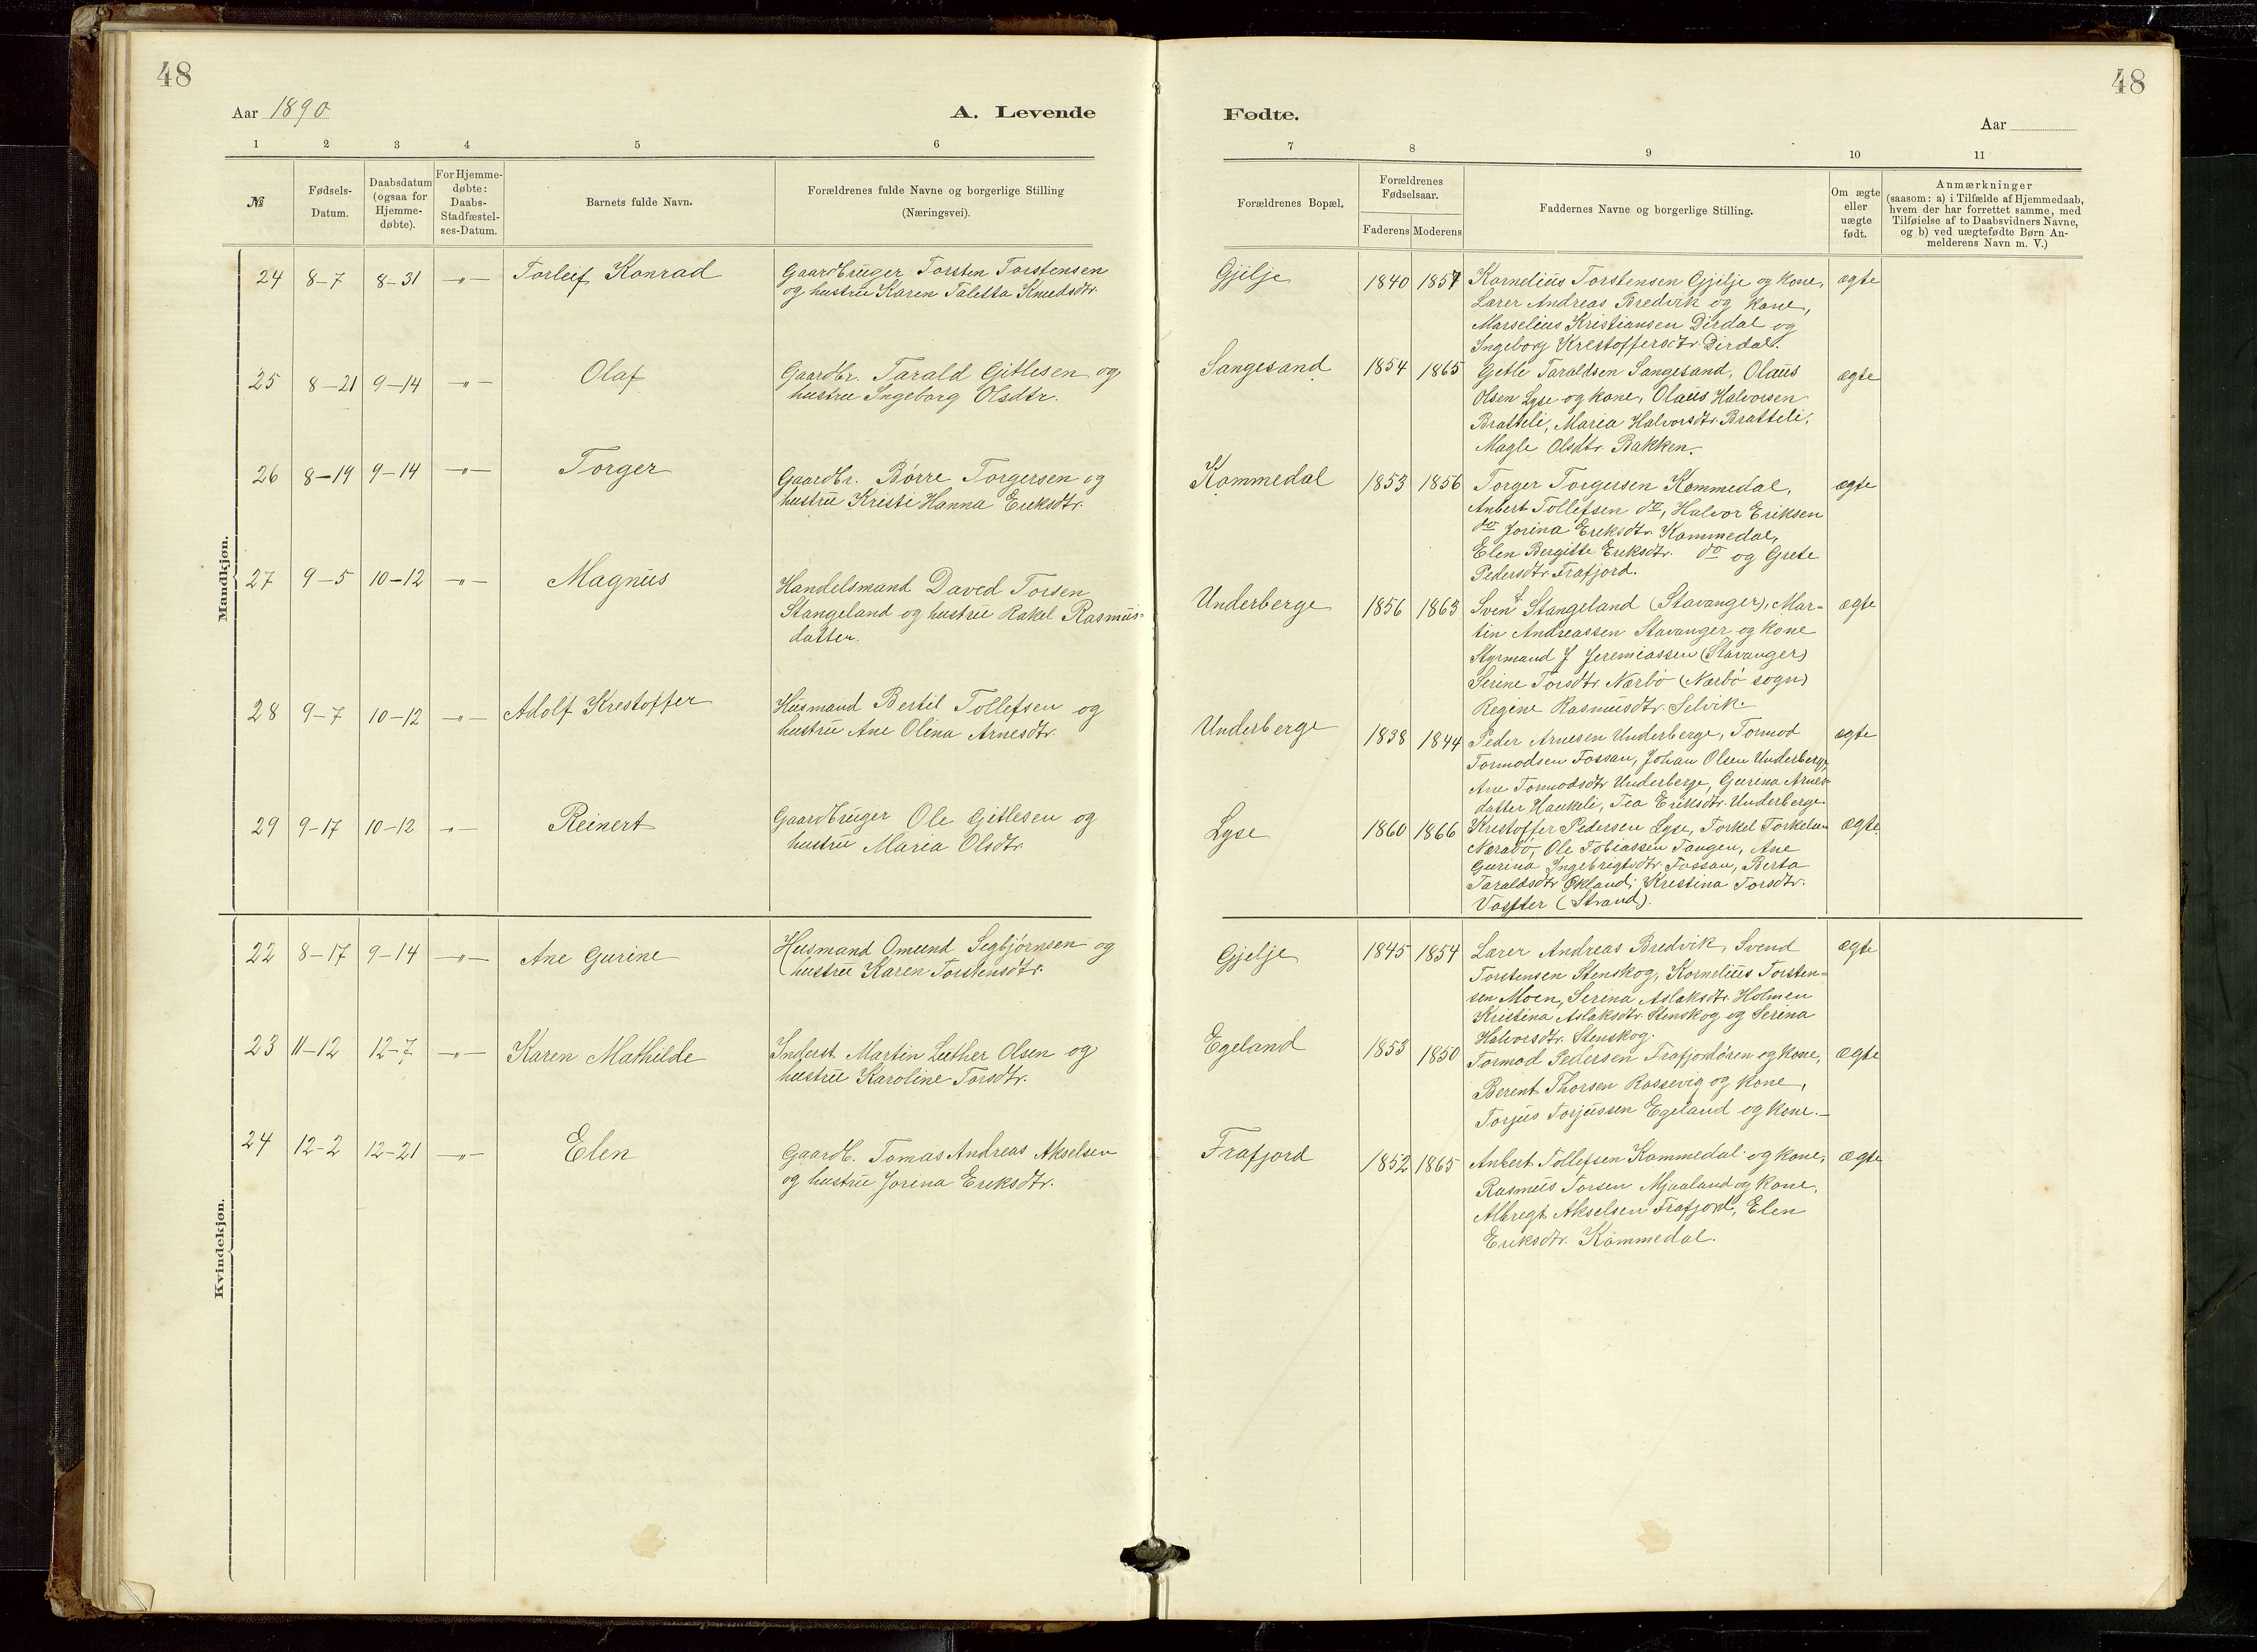 48
Aar 1890
A. Levende
1 2 3 4 5 6
№
Fødsels-
Datum.
Daabsdatum
(ogsaa for
Hjemme-
døbte).
For Hjemme-
døbte:
Daabs-
Stadfæstel-
ses-Datum.
Barnets fulde Navn.
Forældrenes fulde Navne og borgerlige Stilling
(Næringsvei).
Mandkjøn.
24 8-7 8-31 -„- Torleif Konrad
Gaardbruger Torsten Torstensen
og hustru Karen Taletta Knudsdtr.
25 8-21 9-14 -„- Olaf
Gaardbr. Tarald Gitlesen og
hustru Ingeborg Olsdtr.
26 8-19 9-14 -„- Torger
Gaardbr. Børre Torgersen og
hustru Kristi Hanna Eriksdtr.
27 9-5 10-12 -„- Magnus
Handelsmand David Torsen
Stangeland og hustru Rakel Rasmus-
datter.
28 9-7 10-12 -„- Adolf Kristoffer
Husmand Bertil Tollefsen og
hustru Ane Olina Arnesdtr.
29 9-17 10-12 -„- Reinert
Gaardbruger Ole Gitlesen og
hustru Maria Olsdtr.
Kvindekjøn.
22 8-17 9-14 -„- Ane Gurine
Husmand Omund Sigbjørnsen og
hustru Karen Torstensdtr.
23 11-12 12-7 -„- Karen Mathilde
Inderst Martin Luther Olsen og
hustru Karoline Torsdtr.
24 12-2 12-21 -„- Elen
Gaardb. Tomas Andreas Akselsen
og hustru Jorina Eriksdtr.
48
Fødte.
Aar
7 8 9 10 11
Forældrenes Bopæl.
Forældrenes
Fødselsaar.
Faderens Moderens
Faddernes Navne og borgerlige Stilling.
Om ægte
eller
uægte
født.
Anmærkninger
(saasom: a) i Tilfælde af Hjemmedaab,
hvem der har forrettet samme, med
Tilføielse af to Daabsvidners Navne,
og b) ved uægtefødte Børn An-
melderens Navn m. V.)
Gjilje 1840 1857 Kornelius Torstensen Gjilje og kone, ægte
Lærer Andreas Bredvik og kone,
Marselius Kristiansen Dirdal og
Ingeborg Kristoffersdtr. Dirdal.
Sangesand 1854 1865 Gitle Taraldsen Sangesand, Olaus ægte
Olsen Lyse og kone, Olaus Halvorsen
Bratteli, Maria Halvorsdtr. Bratteli,
Magle Olsdtr. Bakken.
Kommedal 1853 1856 Torger Torgersen Kommedal, ægte
Anbert Tollefsen do, Halvor Eriksen
do Jorina Eriksdtr. Kommedal,
Elen Bergitte Eriksdtr. do og Grete
Pedersdtr. Frafjord.
Underberge 1856 1863 Sven S. Stangeland (Stavanger), Mar- ægte
tin Andreassen Stavanger og kone
Styrmand J Jeremiassen (Stavanger)
Serine Torsdtr. Nærbø (Nærbø sogn)
Regine Rasmusdtr. Selvik.
Underberge 1838 1844 Peder Arnesen Underberge, Tormod ægte
Tormodsen Fossan, Johan Olsen Underberge,
Ane Tormodsdtr Underberge, Gurina Arnes-
datter Haukeli, Tea Eriksdtr. Underberge.
Lyse 1860 1866 Kristoffer Pedersen Lyse, Torkel Torkelsen ægte
Nærabø, Ole Tobiassen Tangen, Ane
Gurina Ingebrigtsdtr. Fossan, Berta
Taraldsdtr Økland, Kristina Torsdtr.
(Strand).
Gjelje 1845 1854 Lærer Andreas Bredvik, Svend ægte
Torstensen Stenskog, Kornelius Torsten-
sen Moen, Serina Aslaksdtr. Holmen
Kristina Aslaksdtr. Stenskog og Serina
Halvorsdtr. Stenskog.
Egeland 1853 1850 Tormod Pedersen Frafjordøren og kone, ægte
Berent Thorsen Rossevig og kone,
Torjus Torjussen Egeland og kone.
Frafjord 1852 1865 Anbert Tollefsen Kommedal og kone, ægte
Rasmus Torsen Mjaaland og kone,
Albregt Akselsen Frafjord, Elen
Eriksdtr. Kommedal.